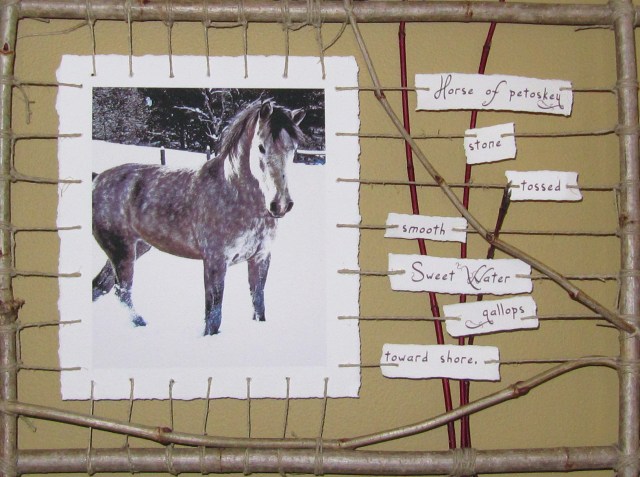 Horse of petoskey
stone
tossed
smooth
Sweet Water
gallops
toward shore.